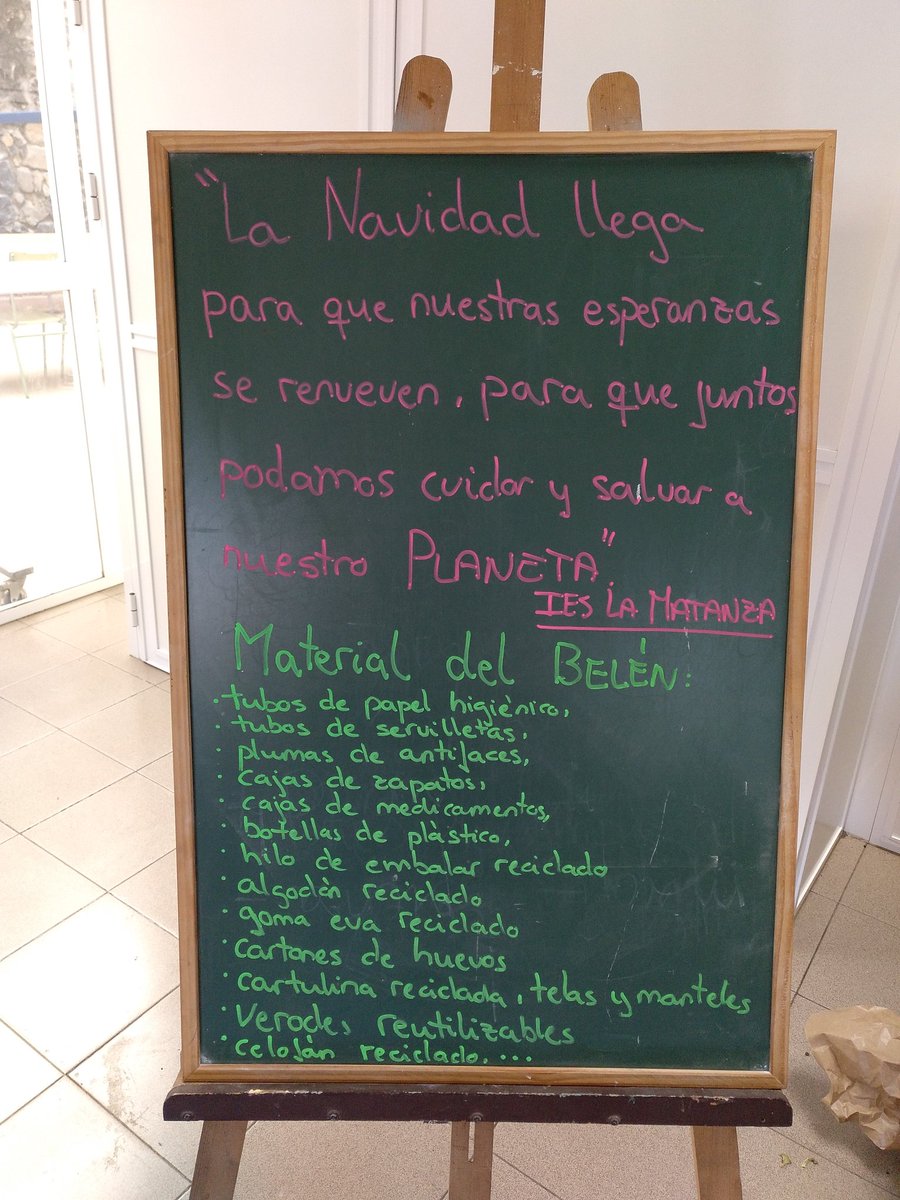 "La Navidad llega
para que nuestras esperanzas
se renueven, para que juntos
podamos cuidar y salvar a
nuestro PLANETA".
IES LA MATANZA
Material del BELÉN:
· tubos de papel higiénico,
· tubos de servilletas,
· plumas de antifaces,
· cajas de zapatos,
· cajas de medicamentos,
· botellas de plástico,
· hilo de embalar reciclado
· algodón reciclado
· goma eva reciclado
· cartones de huevos
· cartulina reciclada, telas y manteles
· Verodes reutilizables
· celofán reciclado. ...